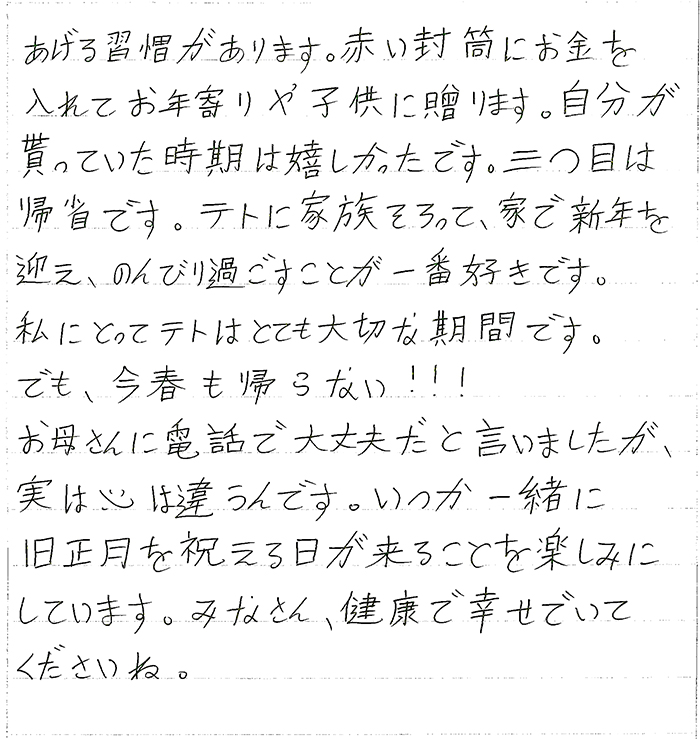 あげる習慣があります。赤い封筒にお金を
入れてお年寄りや子供に贈ります。自分が
貰っていた時期は嬉しかったです。三つ目は
帰省です。テトに家族そろって、家で新年を
迎え、のんびり過ごすことが一番好きです。
私にとってテトはとても大切な期間です。
でも、今春も帰らない!!!
お母さんに電話で大丈夫だと言いましたが、
実は心は違うんです。いつか一緒に
旧正月を祝える日が来ることを楽しみに
しています。みなさん、健康で幸せでいて
くださいね。